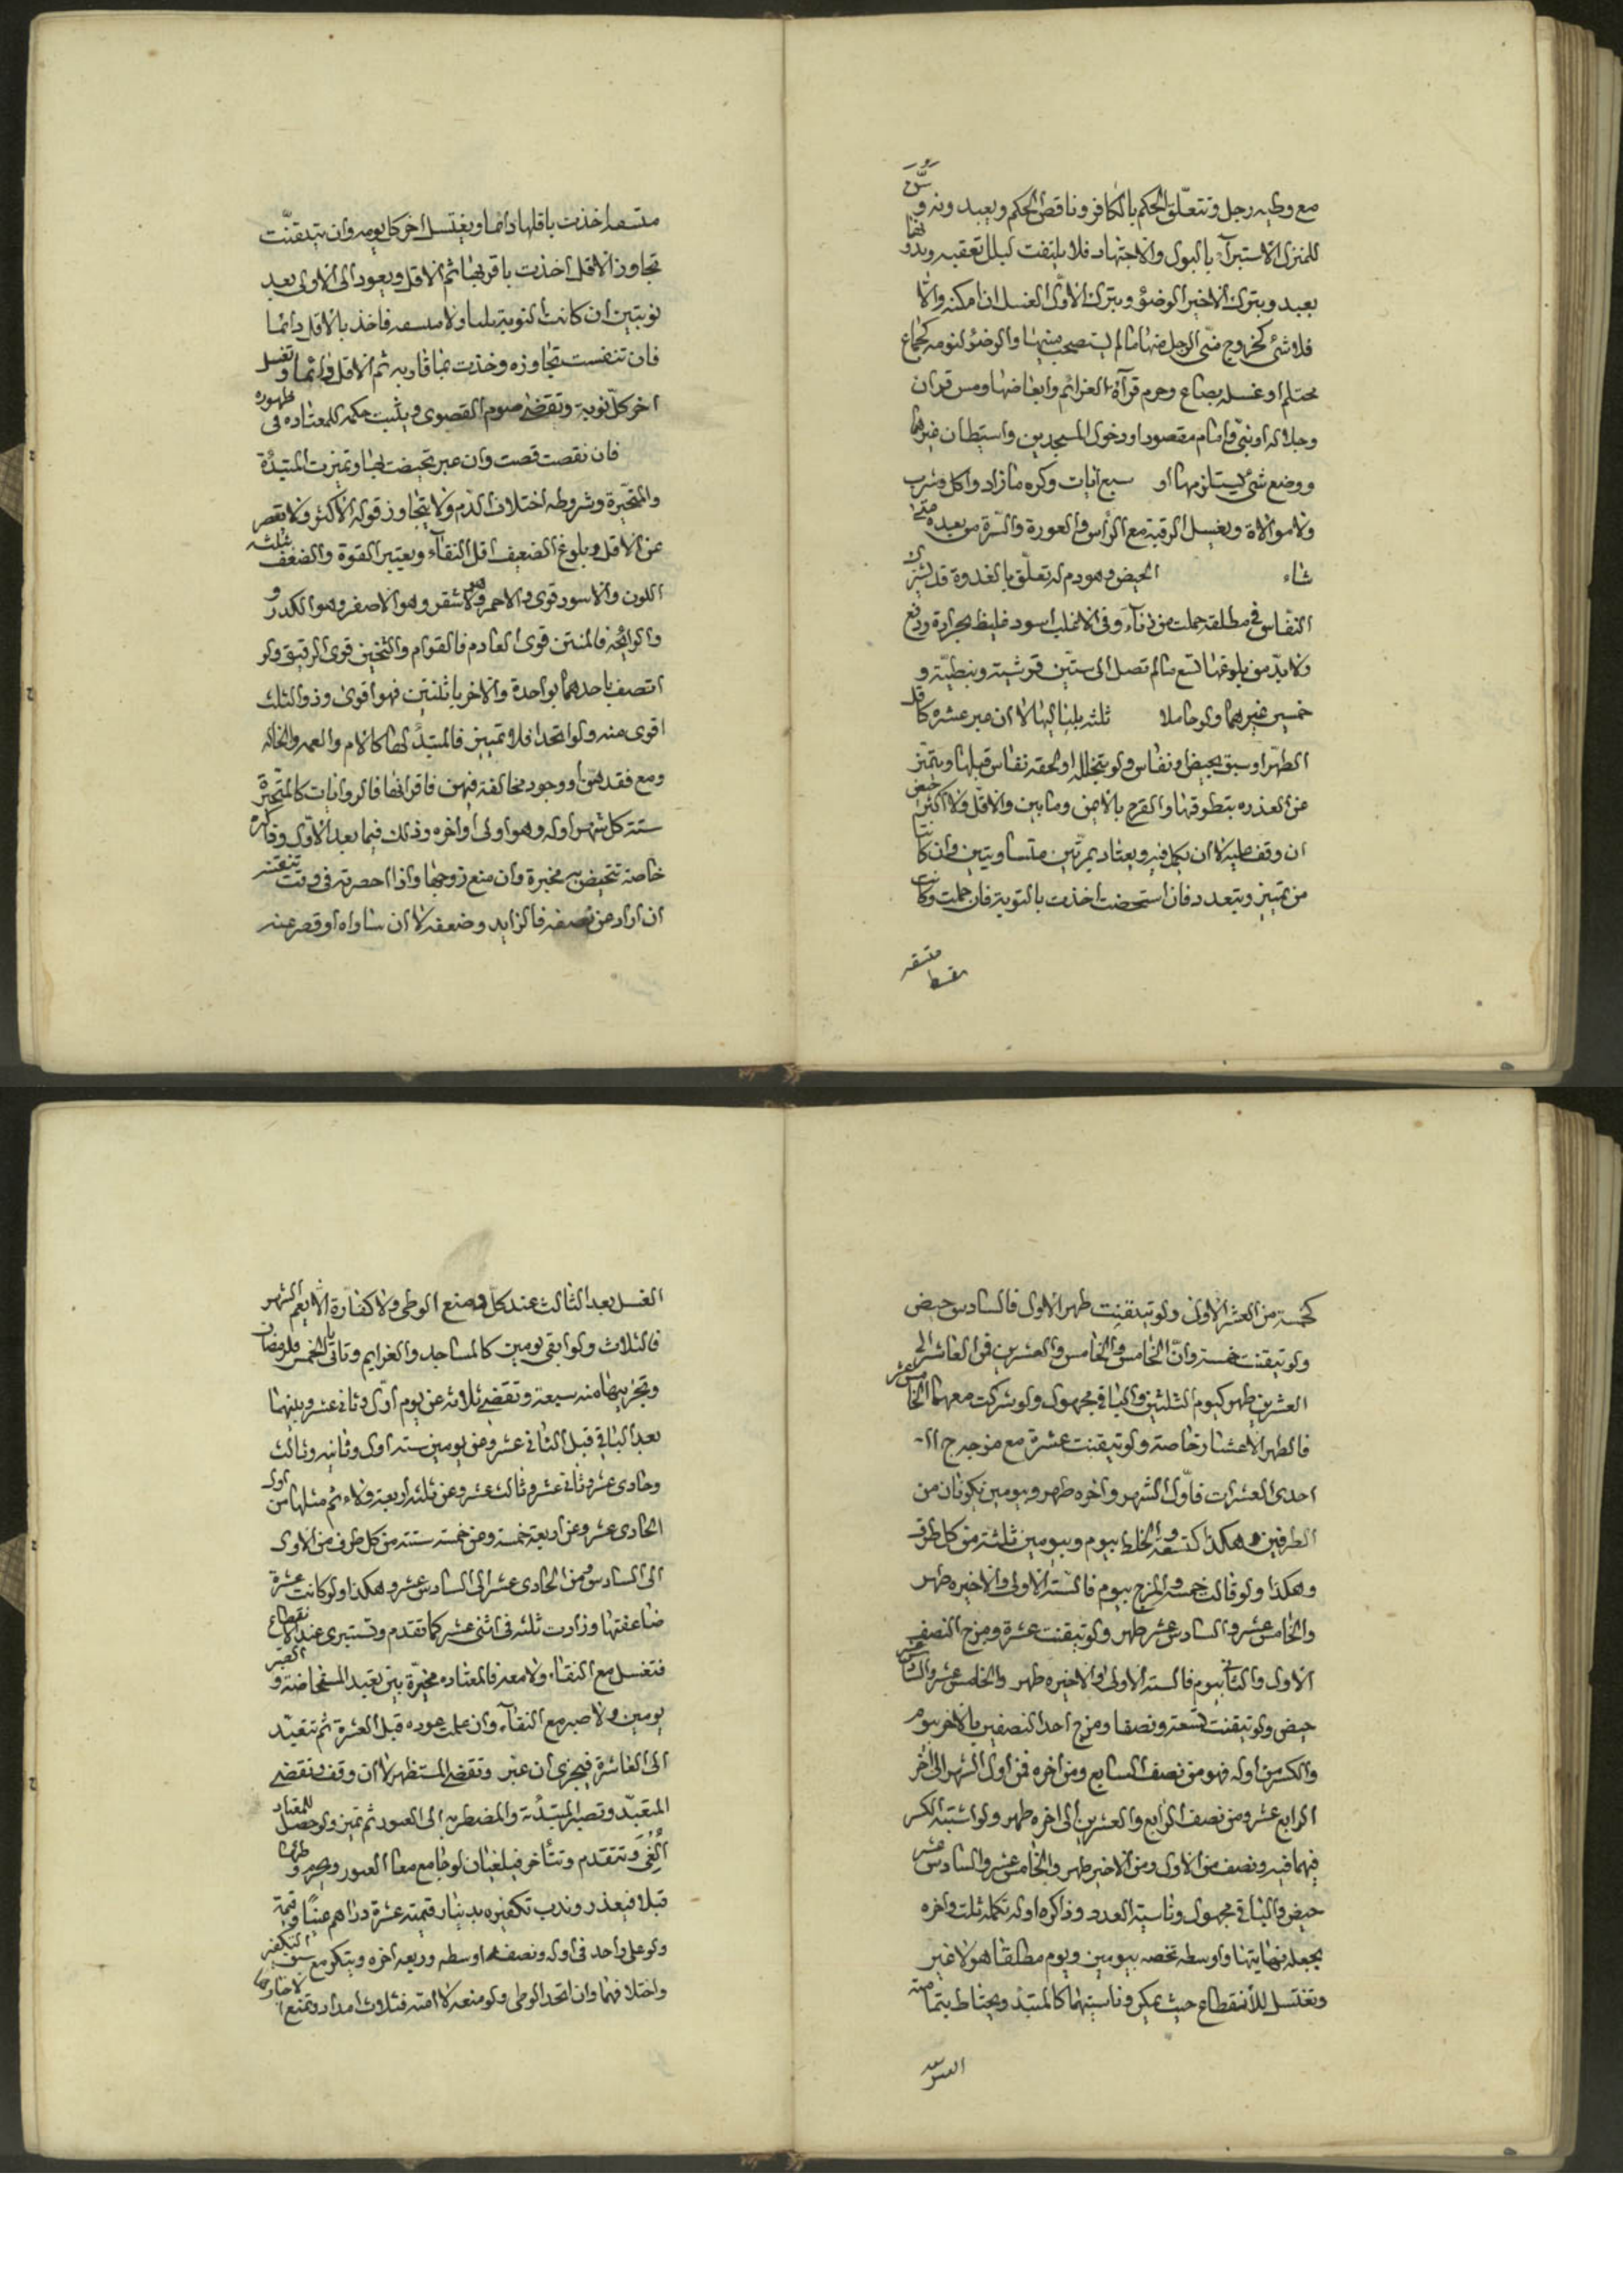 مع وطيه رجل وتتعلّق الحكم بالكافر وناقض الحكم ويعيد وندو
للمنزل الاستبرآء بالبول والاجتهاد فلا يلتفت لبلل تعقبه وبدونهما
يعيد ويترك الاخير الوضوء ويترك الاوّل الغسل ان امكنه والّا
فلا شئ كخروج منّي الرجل منها مالم تستصحب منيها والوضوء لنومه كجماع
محتلم او غسله بصاع وحرم قرآءة العزائم وابعاضها ومس قرآن
وجلاله او نبيّ وامام مقصود او دخول المسجدين واستيطان غيرهما
ووضع شئ يستلزمها او سبع آيات وكره مازاد واكل وشرب
ولا موالاة ويغسل الرقبة مع الرأس والعورة والسّرة من بعيده متى
شاء الحيض وهو دم له تعلّق بالغدوة قد يترك
النفاس في مطلقة حملت من زناء وفي الاغلب اسود غليظ بحرارة ودفع
ولا بدّ من بلوغها تسع مالم تصل الى ستّين قرشية ونبطيّة و
خمسين غيرهما ولو حاملا ثلثة بلياليها لا ان عبر عشره كاقل
الطهر او سبق بحيض او نفاس ولو بتخلله او لحقه نفاس قبلها ويتميّز
عن العذره بتطوقها والقرح بالايمن وما بين والاقلّ والاكثر حيض
ان وقف عليه لا ان يكمل فيه ويعتاد بمرّتين متساويتين وان كانتا
من تمييز ويتعدد فان استحضت اخذت بالنوبة فان جهلت وكانت
متسقه
متسقه اخذت باقلها دائما ويغتسل اخر كل يومه وان تيقنّت
تجاوز الاقل اخذت باقربها ثم الاقل ويعود الى الاولى بعد
نوبتين ان كانت النوبة بلسا ولا متسقه فاخذ بالاقل دائما
فان تنفست تجاوزه وخذت بما قاربه ثم الاقل دائما وتغسل
اخر كلّ نوبة وتقضى صوم القصوى ويثبت حكمه للمعتاده في ظهوره
فان نقصت قصت وان عبر تحيضت بها وتميزت المبتدئة
والمتحيّرة وشروطه اختلاف الدّم ولا يتجاوز قوله الاكثر ولا نقص
عن الاقل وبلوغ الضعيف اقل النقاء ويعتبر القوة والضعف ثلثة
اللون والاسود قوى والاحمر والاشقر وهو الاصفر وهو الكدر و
والرائحة فالمنتن قوى العادم فالقوام والثخين قوى الرقيق ولو
اتصف باحدهما بواحدة والاخر باثنتين فهو اقوى وذو الثلث
اقوى منه ولو اتحد افلا تمييز فالمبتدأ لها كالام والعمه والخاله
ومع فقدهنّ او وجود مخالفة فيهن فاقرانها فالروايات كالمتحيّرة
ستة كل شهر اوله وهو اولى او اخره وذلك فيما بعد الاوّل
خاصة تتحيض به مخيرة وان منع زوجها واذا احصرته في وقت
ان اراد من نصفه فالزايد وضعفه لا ان ساواه او قصر عنه
كخمسة من العشر الاول ولو تيقنت طهر الاول فالسادس حيض
ولو تيقنت خمسة وانّ الخامس والخامس والعشرين فمن العاشر الى
العشرين طهر كيوم الثلثين والباقي مجهول ولو شركت معهما الخامس عشر
فالطهر الاعشار خاصة ولو تيقنت عشرة مع مزجه
احدى العشرات فاوّل الشهر واخره طهر وبيومين يكونان من
الطرفين وهكذا كتسعة والخلط بيوم وبيومين ثلثة من كل طرف
وهكذا ولو قالت خمسة والمزج بيوم فالستة الاولى والاخيره طهر
والخامس عشر والسادس عشر طهر ولو تيقنت عشرة ومزج النصف
الاول والثاني بيوم فالستة الاولى والاخيره طهر والخامس عشر والسادس عشر
حيض ولو تيقنت تسعة ونصفا ومزج احد النصفين بالاخر بيوم
والكسر من اوله فهو من نصف السابع ومن اخره فمن اول الشهر الى اخر
الرابع عشر ومن نصف الرابع والعشرين الى اخره طهر ولو اشتبه الكسر
فيهما فيه ونصف من الاول ومن الاخير طهر والخامس عشر والسادس عشر
حيض والباقي مجهول وناسية العدد وذاكره اوله تكمله ثلث واخره
يجعله نهايتها واوسطه تخصه بيومين ويوم مطلقا هو لا غير
وتغتسل للأنقطاع حيث يمكن وناسيتهما كالمبتدأ ويحتاط بتمامته
الغسل
الغسل بعد الثالث عند كل ومنع الوطى ولا كفارة الا يعم الشهر
فالثلاث ولو ابقى يومين كالمساجد والعزايم وتاتى بالخمس ولرمضان
وتجزيها منه سبعة وتقضى ثلاثة عن يوم اوّل وثاني عشر وبينهما
بعد الباقي قبل الثاني عشر وعن يومين ستة اول وثانيه وثالث
وحادى عشر وثاني عشر وثالث عشر وعن ثلثة اربعة ولاء ثم مثلها من اول
الحادى عشر وعن اربعة خمسة ومن خمسة ستة من كل طرف من الاول
الى السادس ومن الحادى عشر الى السادس عشر وهكذا ولو كانت عشرة
ضاعفتها وزادت ثلثة في اثنى عشر كما تقدم وتستبرى عند الانقطاع
فتغسل مع النقاء ولا معه فالمعتاده مخيّرة بين تعبد المستحاضة و الصبر
يومين ولا صبر مع النقاء وان علمت عوده قبل العشرة ثم تتعبّد
الى العاشرة فيجزى ان عبر وتقضى المستظهر لا ان وقف وتقضى
المتعبّد وتصبر المبتدئة والمضطربه الى العبور ثم تميز ولو حصل للمعتاد
أُلْغِيَ وتتقدم وتتأخر فيلغيان لو جامع معا العبور وصبر وطرئها
قبلا فيعذر وندب تكفيره بدينار قيمته عشرة دراهم عينًا وقيمة
ولو على واحد في اوله ونصفه اوسطه وربعه اخره ويتكرر مع سبق التكفير
واختلافهما وان اتحد الوطى ولو منعه لا امته فثلاث امداد وتمنع